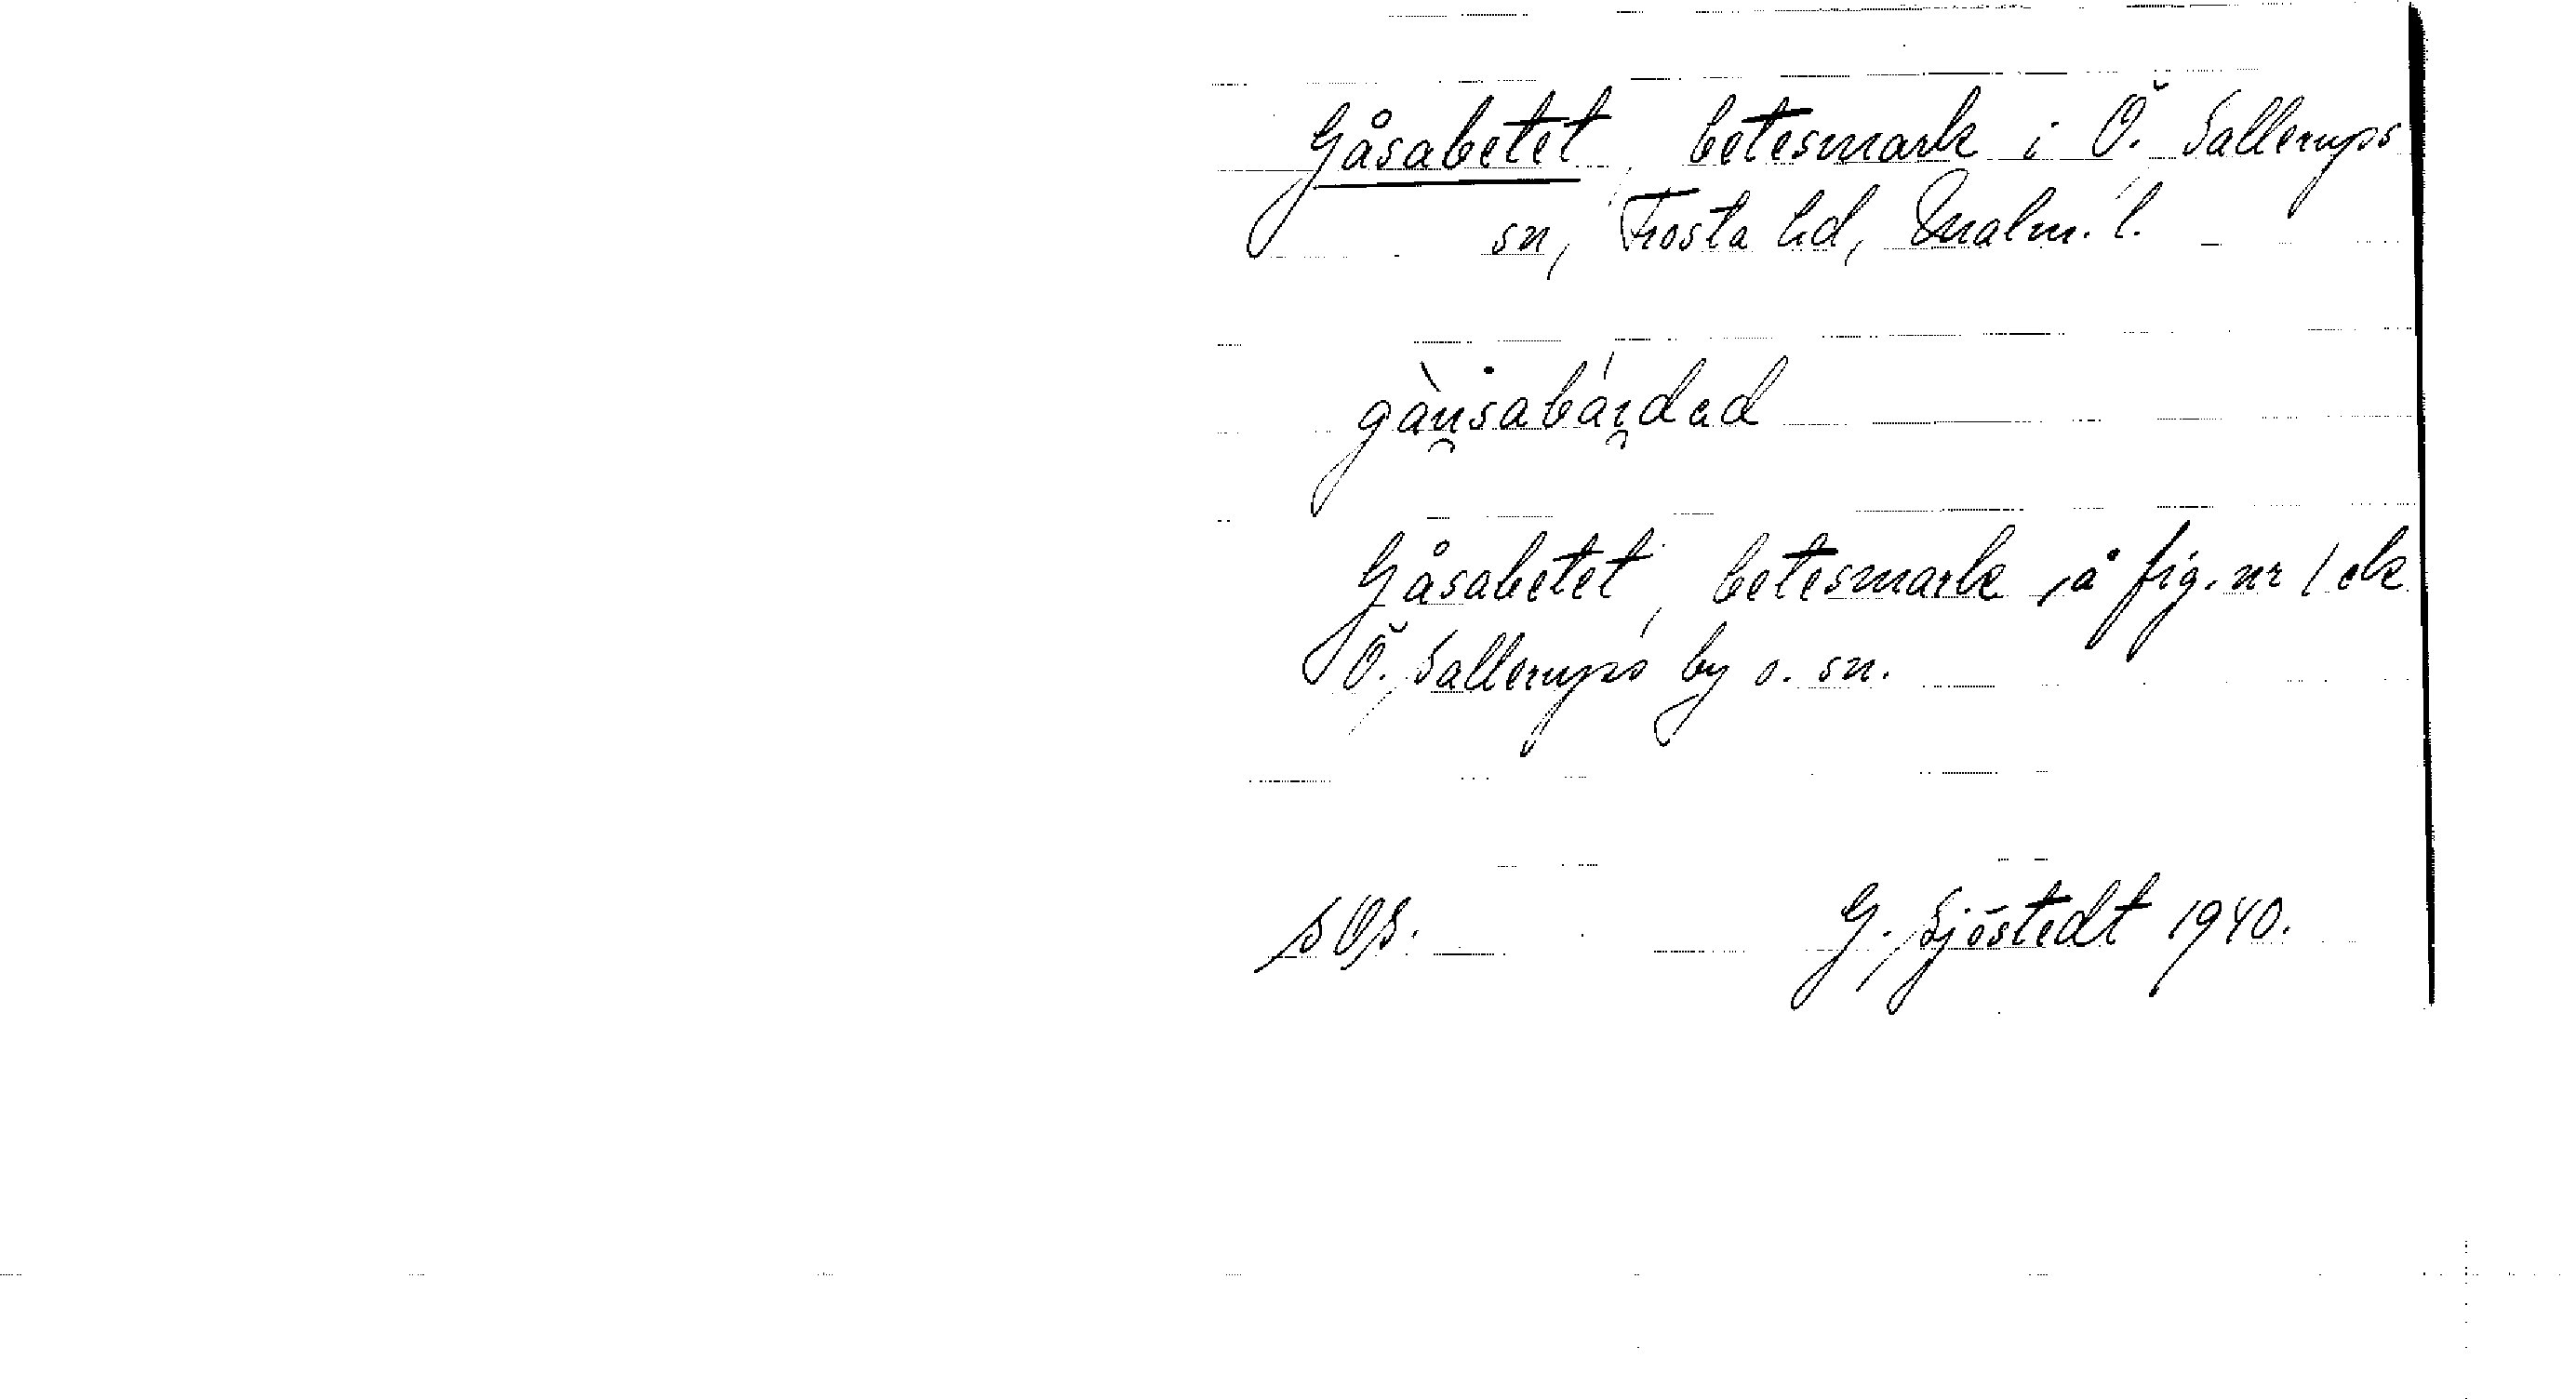 Gåsabetet, betesmark i Ö. Sallerups
sn, Frosta hd, Malm. l.
Gåsabetet, betesmark på fig. nr 1 ek
Ö. Sallerups by o. sn.
SOS. G. Sjöstedt 1940.